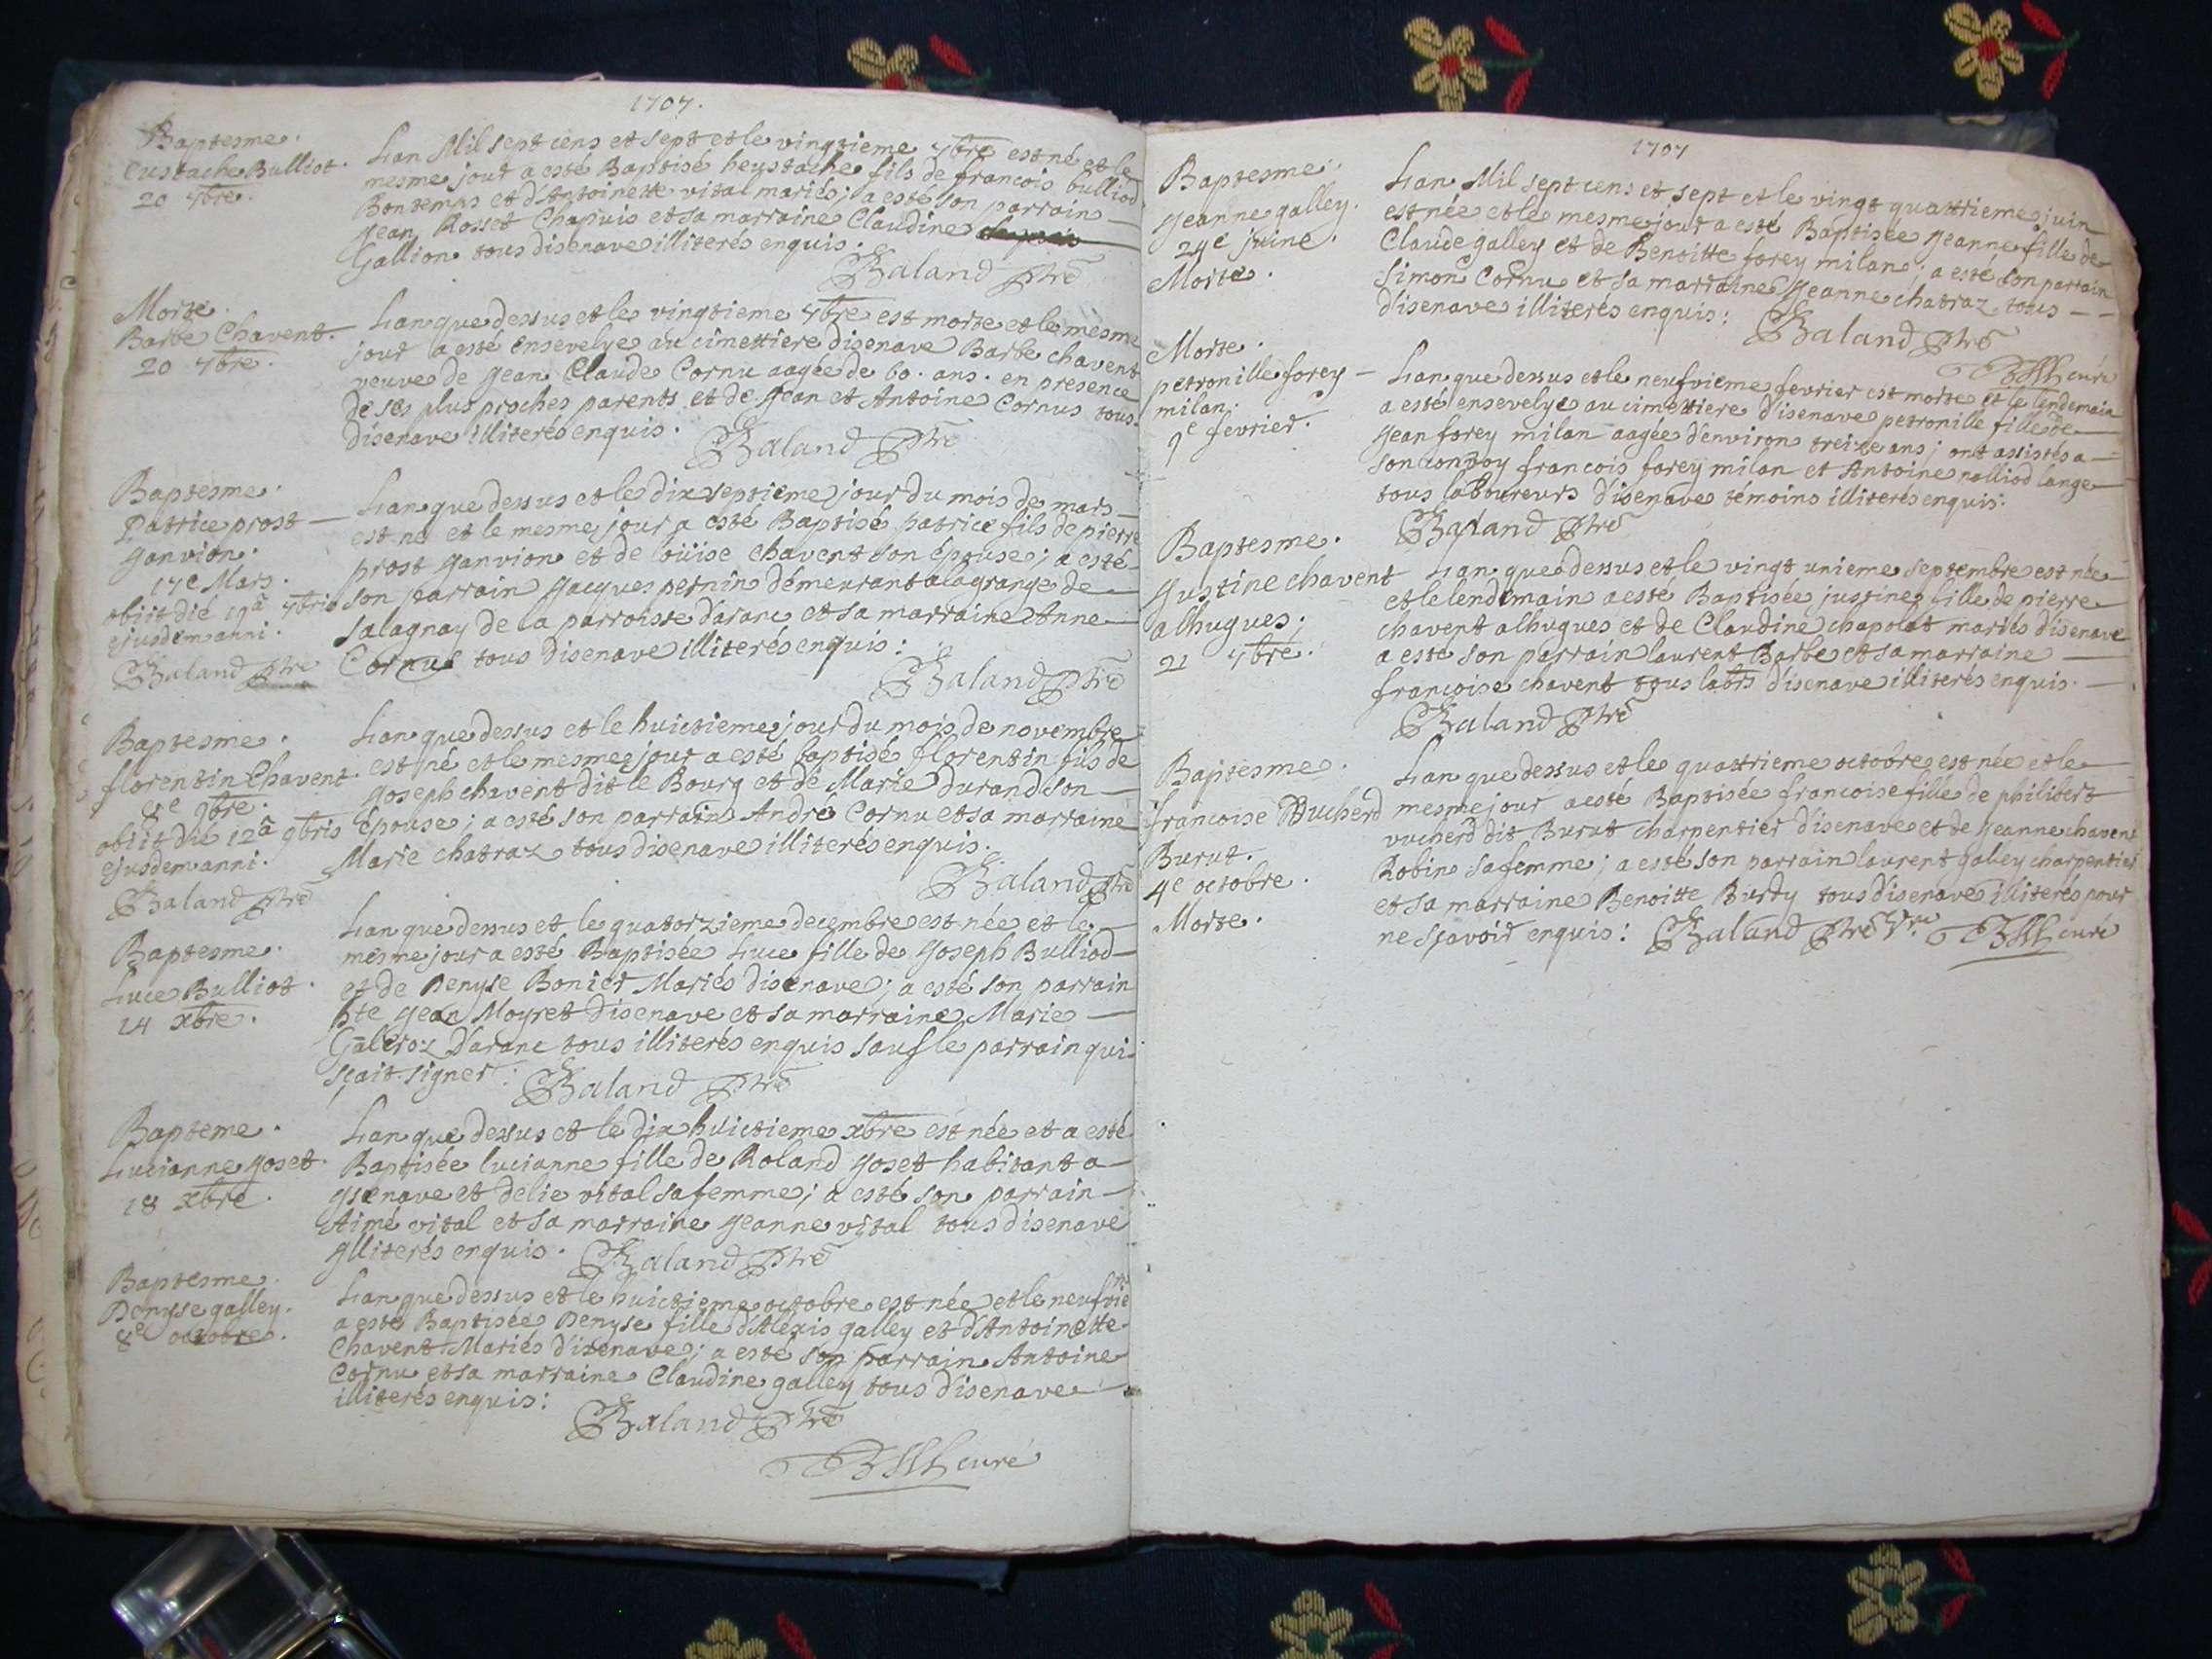 1707.
Baptesme.
Eustache Bulliot.
20 7bre.
Lan Mil sept cens et sept et le vingtieme 7bre est né et le
mesme jour a esté Baptisé heustache fils de francois bulliod
Bontemps et d'Antoinette vital mariés; a esté son parrain
jean Rosset Chapuis et sa marraine Claudine
Gallion tous disenave illiterés enquis.
Baland Ptre
Morte.
Barbe Chavent.
20 7bre.
Lan que dessus et le vingtieme 7bre est morte et le mesme
jour a esté ensevelye au cimettiere disenave Barbe chavent
veuve de jean Claude Cornu aagée de 60. ans. en presence
de ses plus proches parents et de jean et Antoine Cornus tous
disenave illiterés enquis.
Baland Ptre
Baptesme.
Patrice prost
janvion.
17e Mars.
obiit die 19a 7bris
ejusdem anni.
Baland Ptre
Lan que dessus et le dix septieme jour du mois de mars
est né et le mesme jour a esté Baptisé patrice fils de pierre
prost janvion et de loüise chavent son épouse; a esté
son parrain jacques pernin démeurant a la grange de
salagnay de la parroisse d'aranc et sa marraine Anne
Cornus tous disenave illiterés enquis:
Baland Ptre
Baptesme.
florentin Chavent.
8e 9bre.
obiit die 12a 9bris
ejusdem anni.
Baland Ptre
Lan que dessus et le huictieme jour du mois de novembre
est né et le mesme jour a esté baptisé florentin fils de
joseph chavent dit le Bourg et de Marie durand son
épouse; a esté son parrain André Cornu et sa marraine
Marie chatraz tous disenave illiterés enquis.
Baland Ptre
Baptesme.
Luce Bulliot.
14 xbre.
Lan que dessus et le quatorzieme decembre est née et le
mesme jour a esté Baptisée Luce fille de joseph Bulliod
et de Denyse Bonier Mariés disenave; a esté son parrain
hte jean Moyret disenave et sa marraine Marie
Galeroz D'aranc tous illiterés enquis sauf le parrain qui
sçait signer:
Baland Ptre
Bapteme.
Lucianne joset.
18 xbre.
Lan que dessus et le dix huictieme xbre est née et a esté
Baptisée lucianne fille de Roland joset habitant a
jsenave et de lie vital sa femme; a esté son parrain
Aimé vital et sa marraine jeanne vital tous disenave
jlliterés enquis.
Baland Ptre
Baptesme.
Denyse galley.
8e octobre.
Lan que dessus et le huictieme octobre est née et le neufvie
a esté Baptisée Denyse fille d'Alexis galley et d'Antoinette
Chavent Mariés d'izenave; a esté son parrain Antoine
Cornu et sa marraine Claudine galley tous d'isenave
illiterés enquis:
Baland Ptre
curé
1707
Baptesme.
jeanne galley.
24e juine.
Morte.
Lan Mil sept cens et sept et le vingt quattrieme juin
est née et le mesme jour a esté Baptisée jeanne fille de
Claude galley et de Benoitte forey milan; a esté son parrain
simon Cornu et sa marraine jeanne chatraz tous
d'isenave illiterés enquis:
Baland Ptre
curé
Morte.
petronille forey
milan.
9e fevrier.
Lan que dessus et le neufvieme fevrier est morte et le lendemain
a esté ensevelye au cimettiere d'isenave petronille fille de
jean forey milan aagée d'environ treize ans; ont assistés a
son convoy francois forey milan et Antoine nalliod lange
tous laboureurs d'isenave témoins illiterés enquis:
Baland Ptre
Baptesme.
justine chavent
alhugues;
21 7bre.
Lan que dessus et le vingt unieme septembre est née
et le lendemain a esté Baptisée justine fille de pierre
chavent alhugues et de Claudine chapolat mariés d'isenave
a esté son parrain laurent Barbe et sa marraine
françoise chavent tous labrs d'isenave illiterés enquis.
Baland Ptre
Baptesme.
francoise Vucherd
Burut.
4e octobre.
Morte.
Lan que dessus et le quattrieme octobre est née et le
mesme jour a esté Baptisée francoise fille de philibert
vucherd dit Burut charpentier d'isenave et de jeanne chavent
Robin sa femme; a esté son parrain laurent galley charpentier
et sa marraine Benoitte Burdy tous d'isenave illiterés pour
ne sçavoir enquis:
Baland Ptre
curé